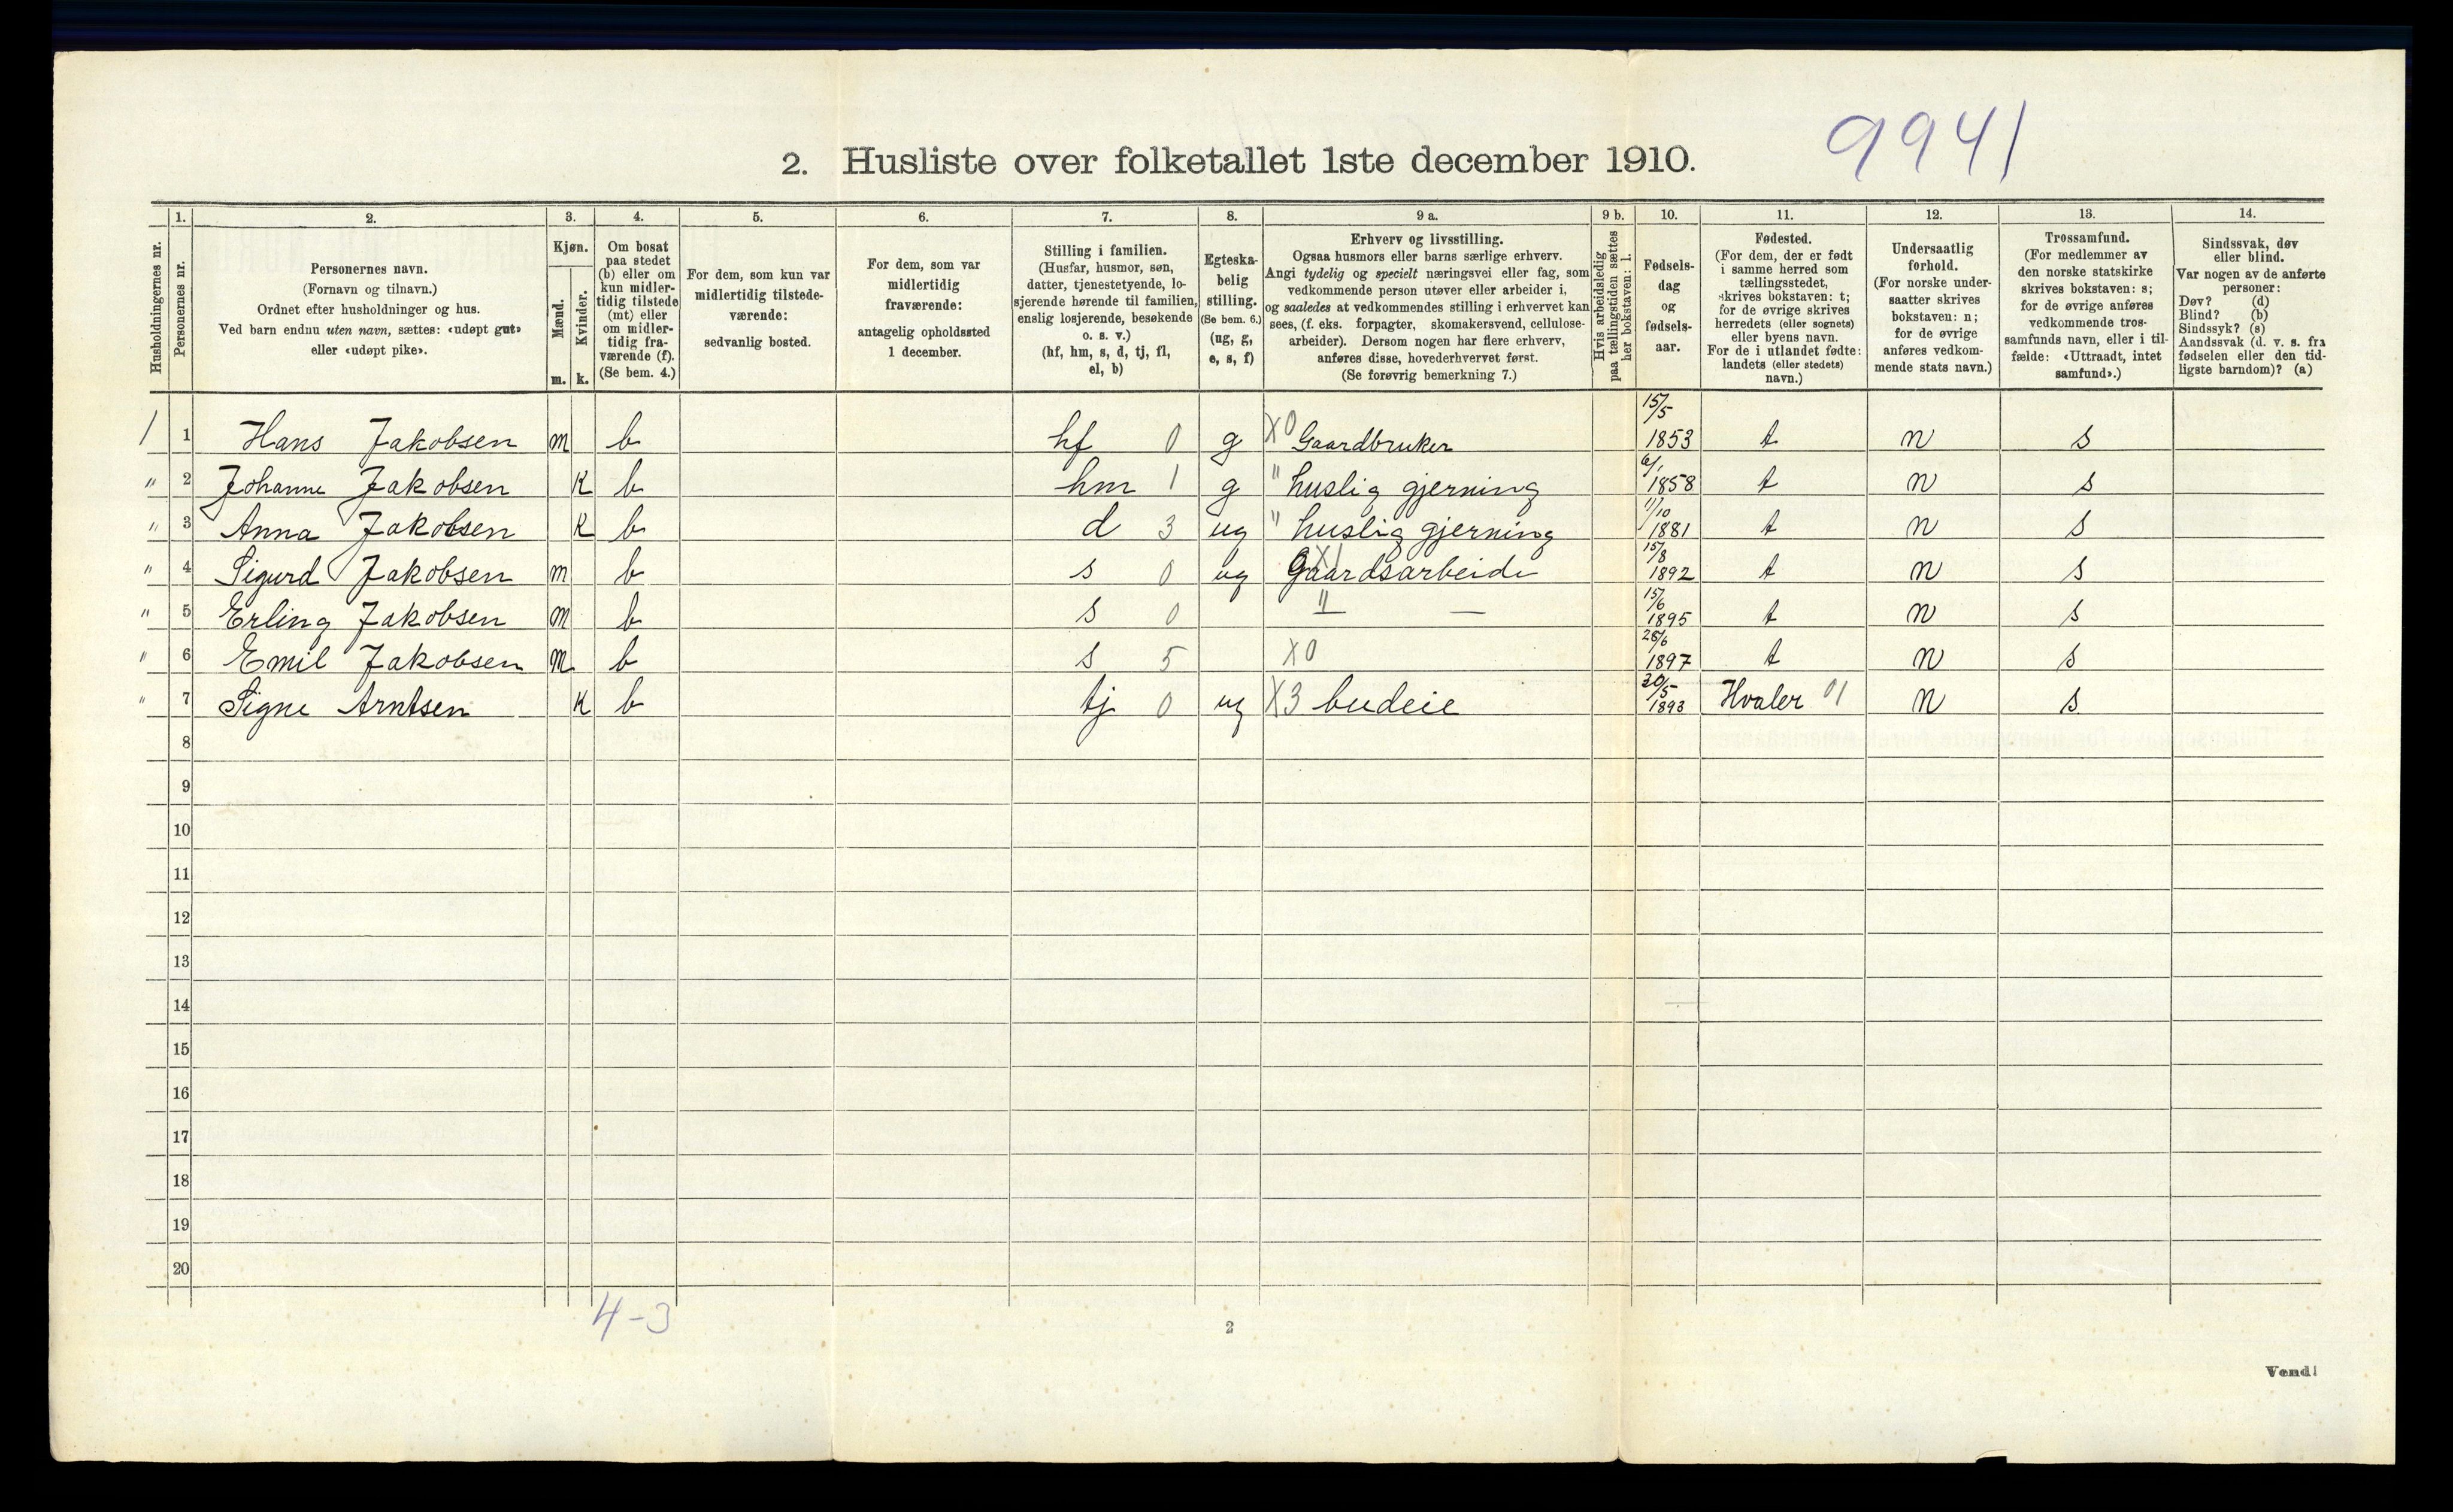 9941
2. Husliste over folketallet 1ste december 1910.
Husholdningernes nr.
1. Personernes nr.
2. Personernes navn.
(Fornavn og tilnavn.)
Ordnet efter husholdninger og hus.
Ved barn endnu uten navn, sættes: «udøpt gut»
eller «udøpt pike».
3. Kjøn.
Mænd. m.
Kvinder. k.
4. Om bosat
paa stedet
(b) eller om
kun midler-
tidig tilstede
(mt) eller
om midler-
tidig fra-
værende (f).
(Se bem. 4.)
5. For dem, som kun var
midlertidig tilstede-
værende:
sedvanlig bosted.
6. For dem, som var
midlertidig
fraværende:
antagelig opholdssted
1 december.
7. Stilling i familien.
(Husfar, husmor, søn,
datter, tjenestetyende, lo-
sjerende hørende til familien,
enslig losjerende, besøkende
o. s. v.)
(hf, hm, s, d, tj, fl,
el, b)
8. Egteska-
belig
stilling.
(Se bem. 6.)
(ug, g,
e, s, f)
9 a. Erhverv og livsstilling.
Ogsaa husmors eller barns særlige erhverv.
Angi tydelig og specielt næringsvei eller fag, som
vedkommende person utøver eller arbeider i,
og saaledes at vedkommendes stilling i erhvervet kan
sees, (f. eks. forpagter, skomakersvend, cellulose-
arbeider). Dersom nogen har flere erhverv,
anføres disse, hovederhvervet først.
(Se forøvrig bemerkning 7.)
9 b. Hvis arbeidsledig
paa tællingstiden sættes
her bokstaven: l.
10. Fødsels-
dag
og
fødsels-
aar.
11. Fødested.
(For dem, der er født
i samme herred som
tællingsstedet,
skrives bokstaven: t;
for de øvrige skrives
herredets (eller sognets)
eller byens navn.
For de i utlandet fødte:
landets (eller stedets)
navn.)
12. Undersaatlig
forhold.
(For norske under-
saatter skrives
bokstaven: n;
for de øvrige
anføres vedkom-
mende stats navn.)
13. Trossamfund.
(For medlemmer av
den norske statskirke
skrives bokstaven: s;
for de øvrige anføres
vedkommende tros-
samfunds navn, eller i til-
fælde: «Uttraadt, intet
samfund».)
14. Sindssvak, døv
eller blind.
Var nogen av de anførte
personer:
Døv? (d)
Blind? (b)
Sindssyk? (s)
Aandssvak (d. v. s. fra
fødselen eller den tid-
ligste barndom)? (a)
1 1 Hans Jakobsen m b hf 0 g X0 Gaardbruker 15/5 1853 t n s
" 2 Johanne Jakobsen K b hm 1 g " huslig gjerning 6/1 1858 t n s
" 3 Anna Jakobsen K b d 3 ug " huslig gjerning 11/10 1881 t n s
" 4 Sigurd Jakobsen m b s 0 ug X1 Gaardsarbeide 15/8 1892 t n s
" 5 Erling Jakobsen m b s 0 " — 15/6 1895 t n s
" 6 Emil Jakobsen m b s 5 X0 28/6 1897 t n s
" 7 Signe Arntsen K b tj 0 ug X3 budeie 30/5 1893 Hvaler 01 n s
8
9
10
11
12
13
14
15
16
17
18
19
20
4-3
2
Vend!